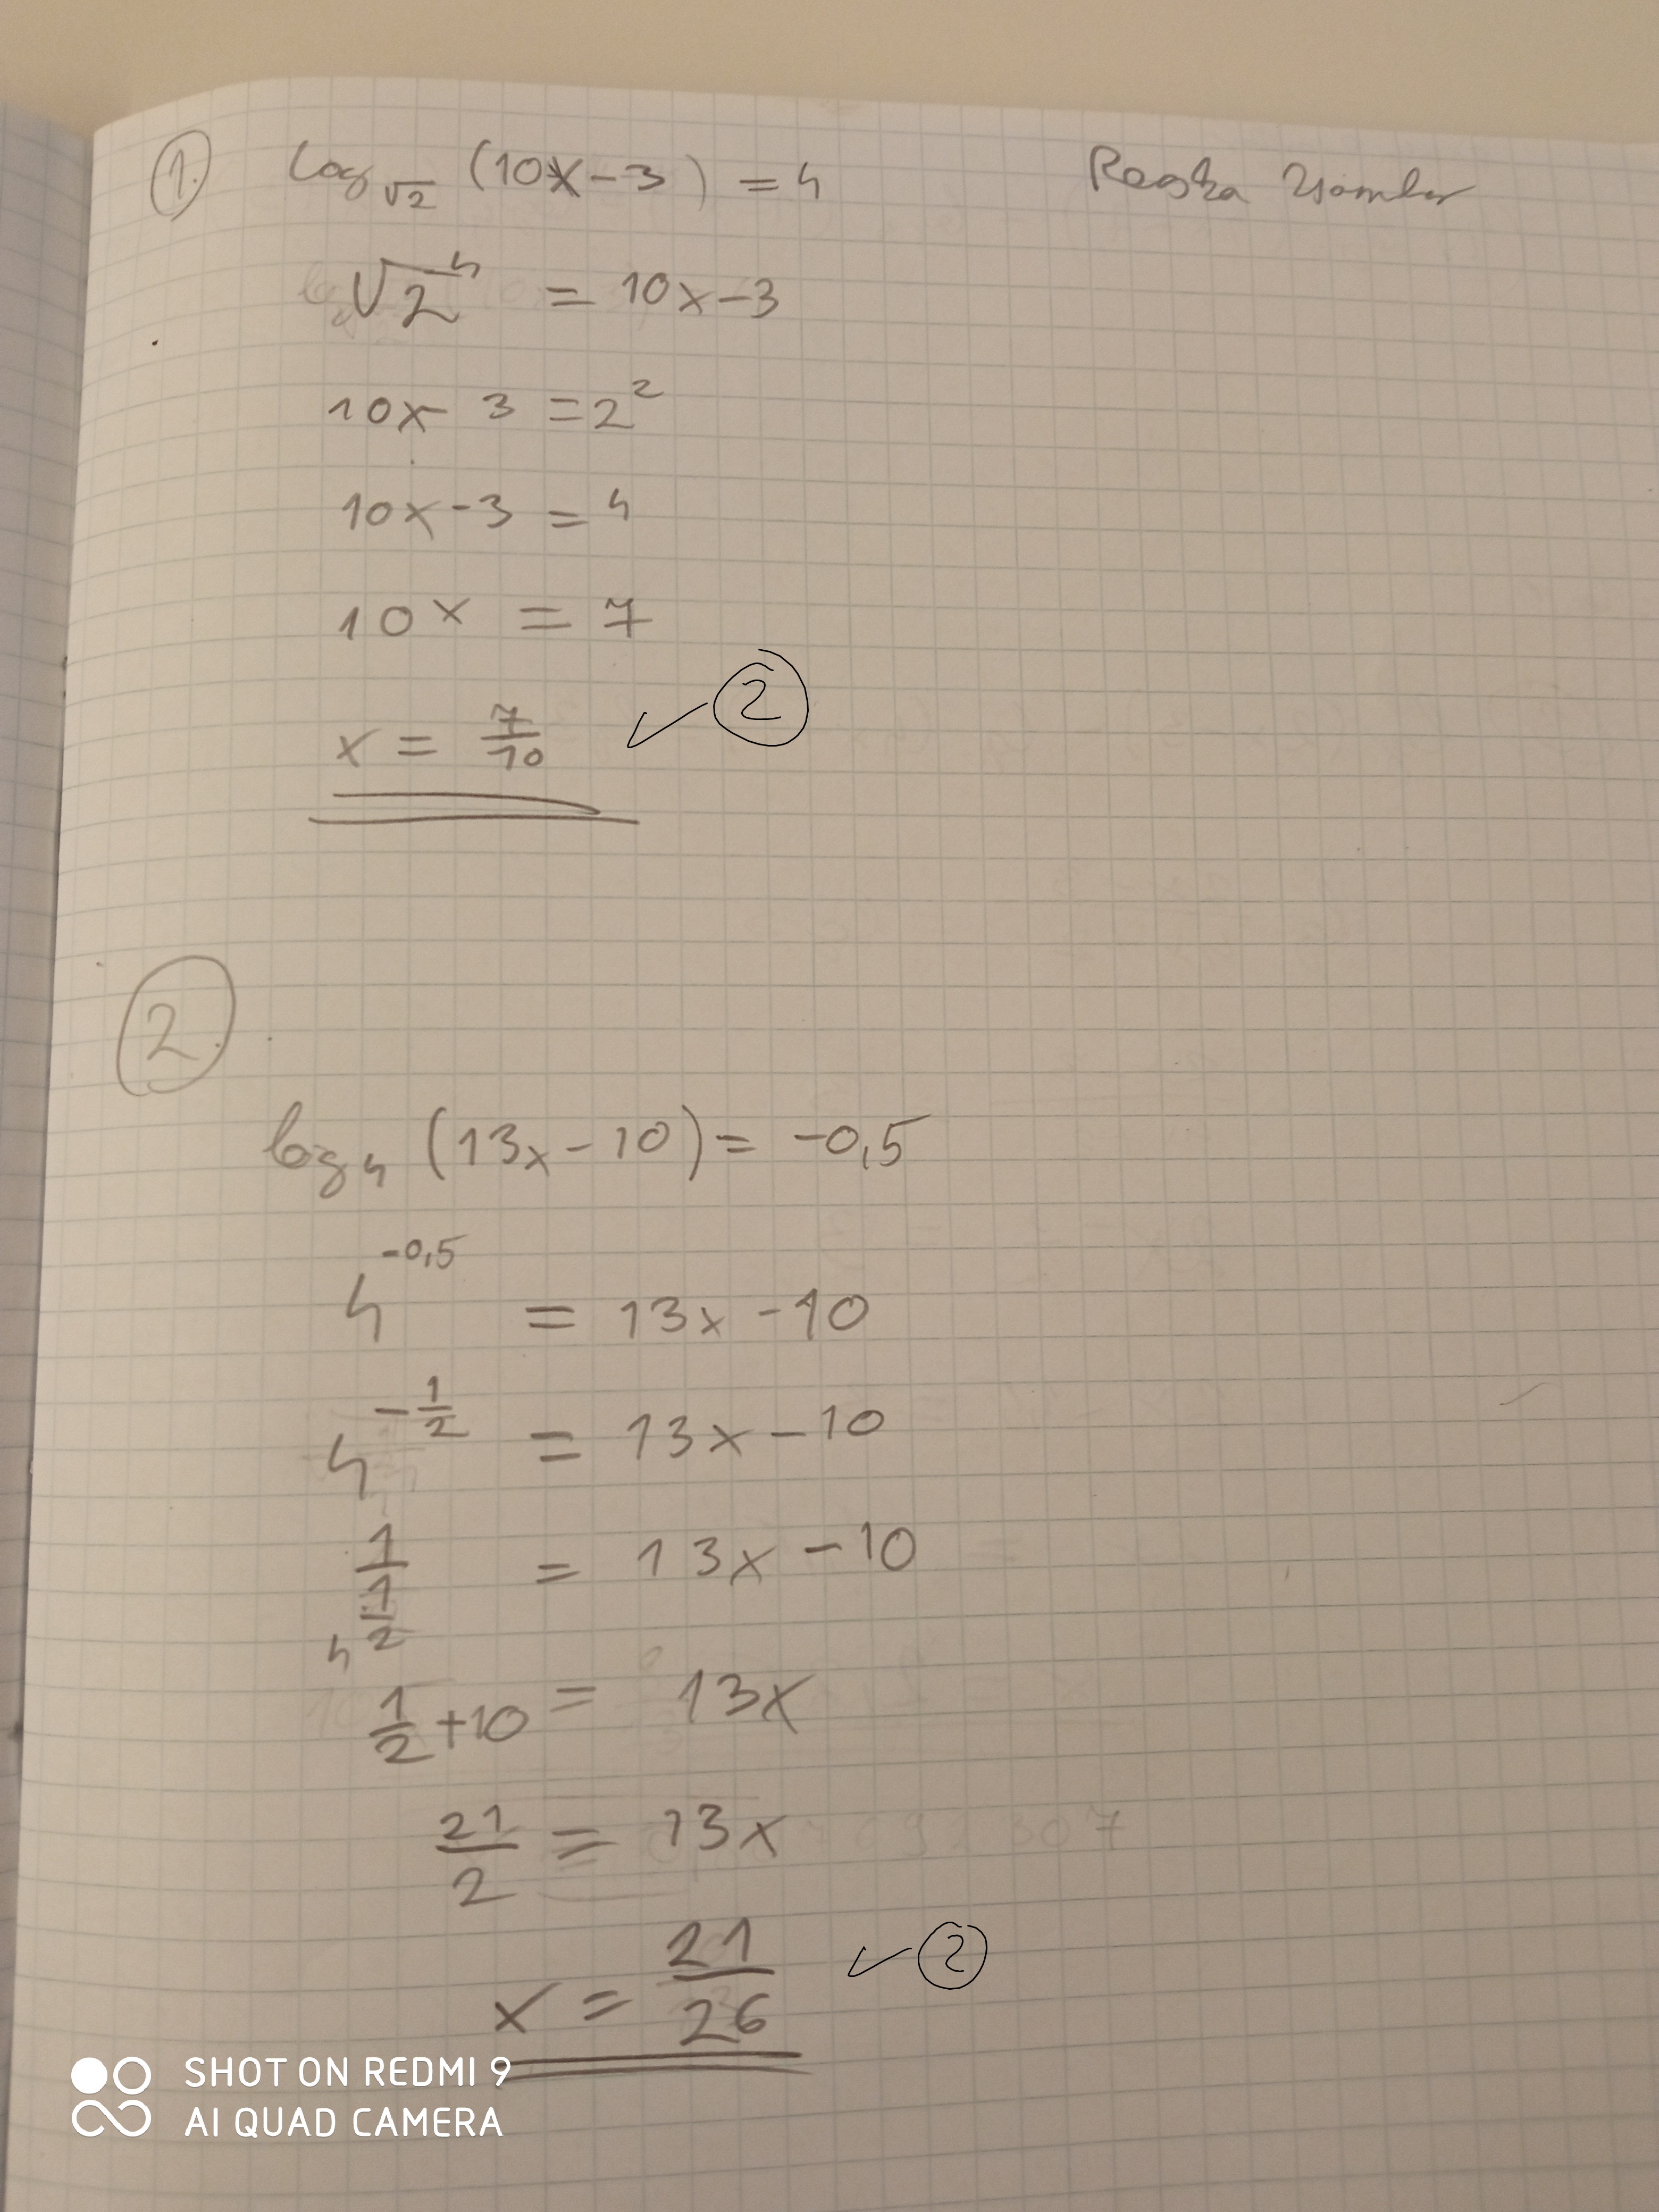 1. log√2 (10x-3) = 4
√2^4 = 10x-3
10x-3 = 2^2
10x-3 = 4
10x = 7
x = 7/10 ✓ 2
2.
log4 (13x-10) = -0,5
4^-0,5 = 13x-10
4^-1/2 = 13x-10
1/4^1/2 = 13x-10
1/2+10 = 13x
21/2 = 13x
x = 21/26 ✓ 2
SHOT ON REDMI 9
AI QUAD CAMERA